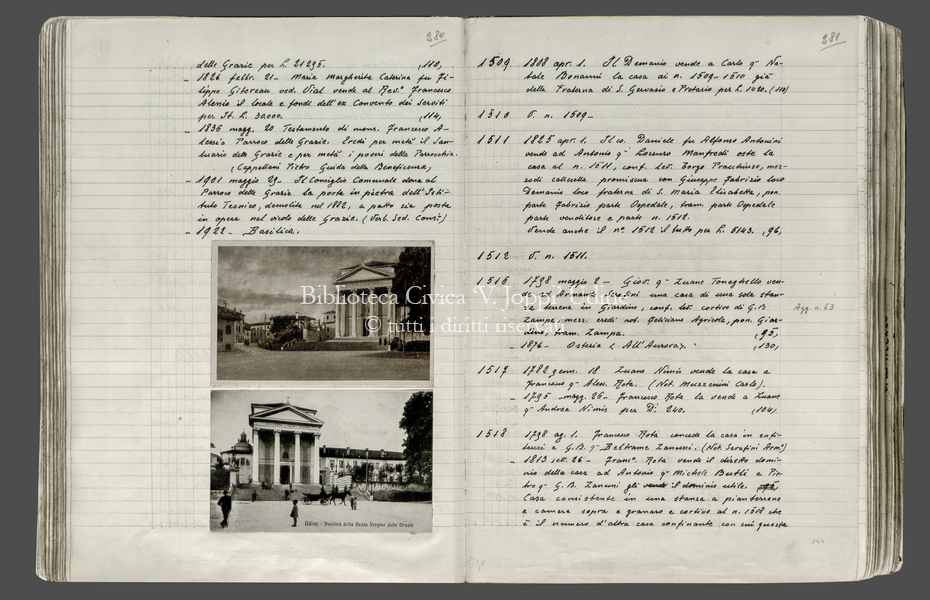 280
delle Grazie per L. 21295. (110,
- 1826 febbr. 21 - Maria Margherita Caterina fu Fi-
lippo Gitereau ved. Vial vende al Rev.º Francesco
Alessio il locale e fondi dell'ex Convento dei Serviti
per It. L. 30000. (114,
- 1836 magg. 20. Testamento di mons. Francesco A-
lessio Parroco delle Grazie. Eredi per metà il San-
tuario delle Grazie e per metà i poveri della Parrocchia.
(Cappellani Pietro Guida della Beneficenza)
- 1901 maggio 29. Il Consiglio Comunale dona al
Parroco delle Grazie la porta in pietra dell'Isti-
tuto Tecnico, demolita nel 1882, a patto sia posta
in opera nel vicolo delle Grazie. (Verb. Sed. Cons.)
- 1922 - Basilica.
Udine - Basilica della Beata Vergine delle Grazie
281
1509 1808 apr. 1. Il Demanio vende a Carlo q.m Na-
tale Bonanni la casa ai n. 1509-1510 già
della Fraterna di S. Gervasio e Protasio per L. 1420. (110)
1510 V. n. 1509-
1511 1825 apr. 1. Il co. Daniele fu Alfonso Antonini
vende ad Antonio q.m Lorenzo Manfredi oste la
casa al n. 1511, conf. lev. Zorzi mez-
zodì calle promiscua con Giuseppe Fabrizio loco
Demanio loco fraterna di S. Maria Elisabetta, pon.
parte Fabrizio parte Ospedale, tram. parte Ospedale
parte venditore e parte n. 1512.
Vende anche il nº 1512 il tutto per L. 5143. (96,
1512 V. n. 1511.
1516 1798 maggio 2 - Giov. q.m Zuane Toneghello ven-
de ad Armando Serafini una casa di una sola stan-
za terrena in Giardino, conf. lev. cortivo di G.B.
Zampa, mezz. eredi nob. Feliciano Agricola, pon. Giar-
dino, tram. Zampa. (95,
- 1876 - Osteria < All'Aurora >. (130,
Agg. n. 63
1517 1782 genn. 18 Zuane Nimis vende la casa a
Francesco q.m Aless. Rota. (Not. Muzzenini Carlo).
- 1795 - magg. 26 - Francesco Rota la vende a Zuane
q.m Andrea Nimis per D. 240. (104)
1518 1798 ag. 1. Francesco Rota concede la casa in enfi-
teusi a G.B. q.m Beltrame Zanussi. (Not. Serafini Arm.)
- 1813 ott. 26 - Franc.º Rota vende il diretto domi-
nio della casa ad Antonio q.m Michele Butti e Pie-
tro q.m G.B. Zanussi gli il dominio utile.
Casa consistente in una stanza a pianterreno
e camera sopra e granaro e cortivo al n. 1518 che
è il numero d'altra casa confinante con cui questa
144
Biblioteca Civica "V. Joppi" Udine
© tutti i diritti riservati